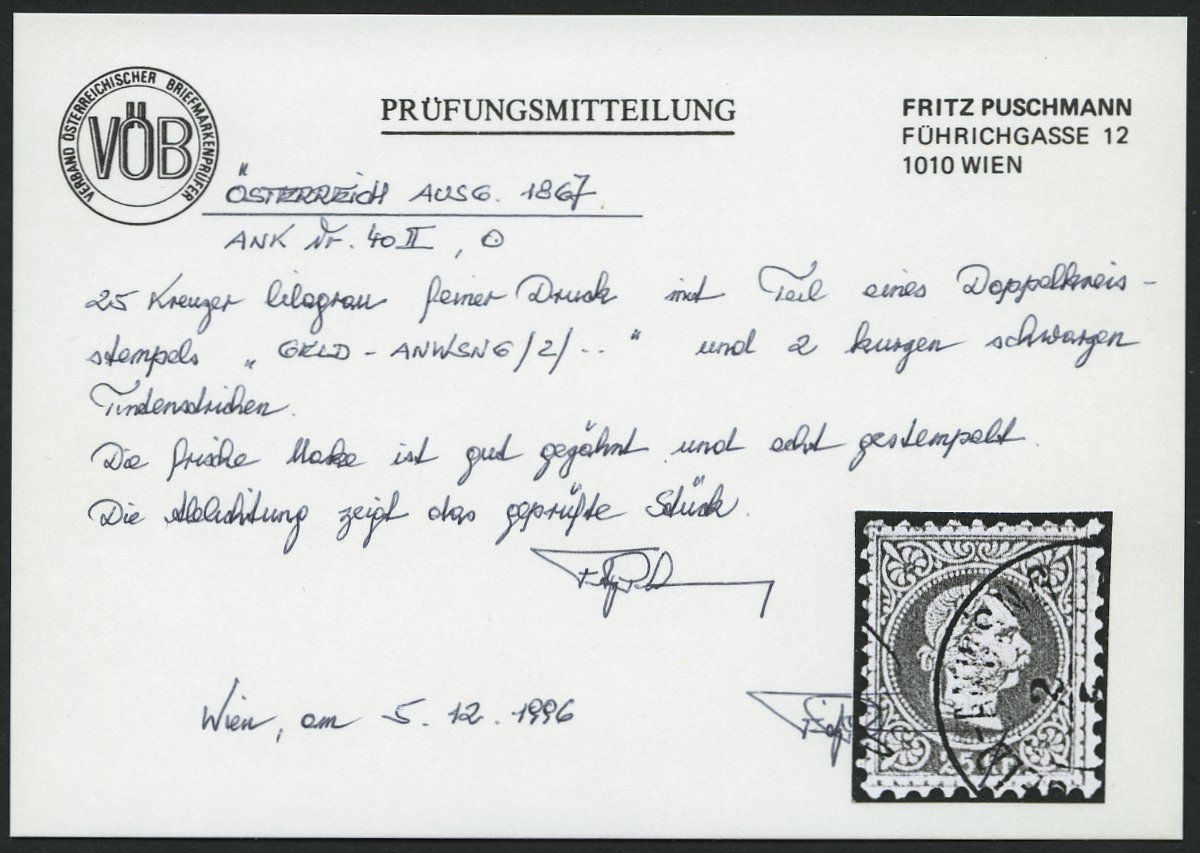 VERBAND ÖSTERREICHISCHER BRIEFMARKENPRÜFER
VÖB
PRÜFUNGSMITTEILUNG
FRITZ PUSCHMANN
FÜHRICHGASSE 12
1010 WIEN
ÖSTERREICH AUSG. 1867.
ANK Nr. 40 II, ⊙
25 Kreuzer lilagrau feiner Druck mit Teil eines Doppelkreis-
stempels „GELD-ANWSNG/2/.." und 2 kurzen schwarzen
Tintenstrichen.
Die frische Marke ist gut gezähnt und echt gestempelt.
Die Ablichtung zeigt das geprüfte Stück.
Wien, am 5.12.1996